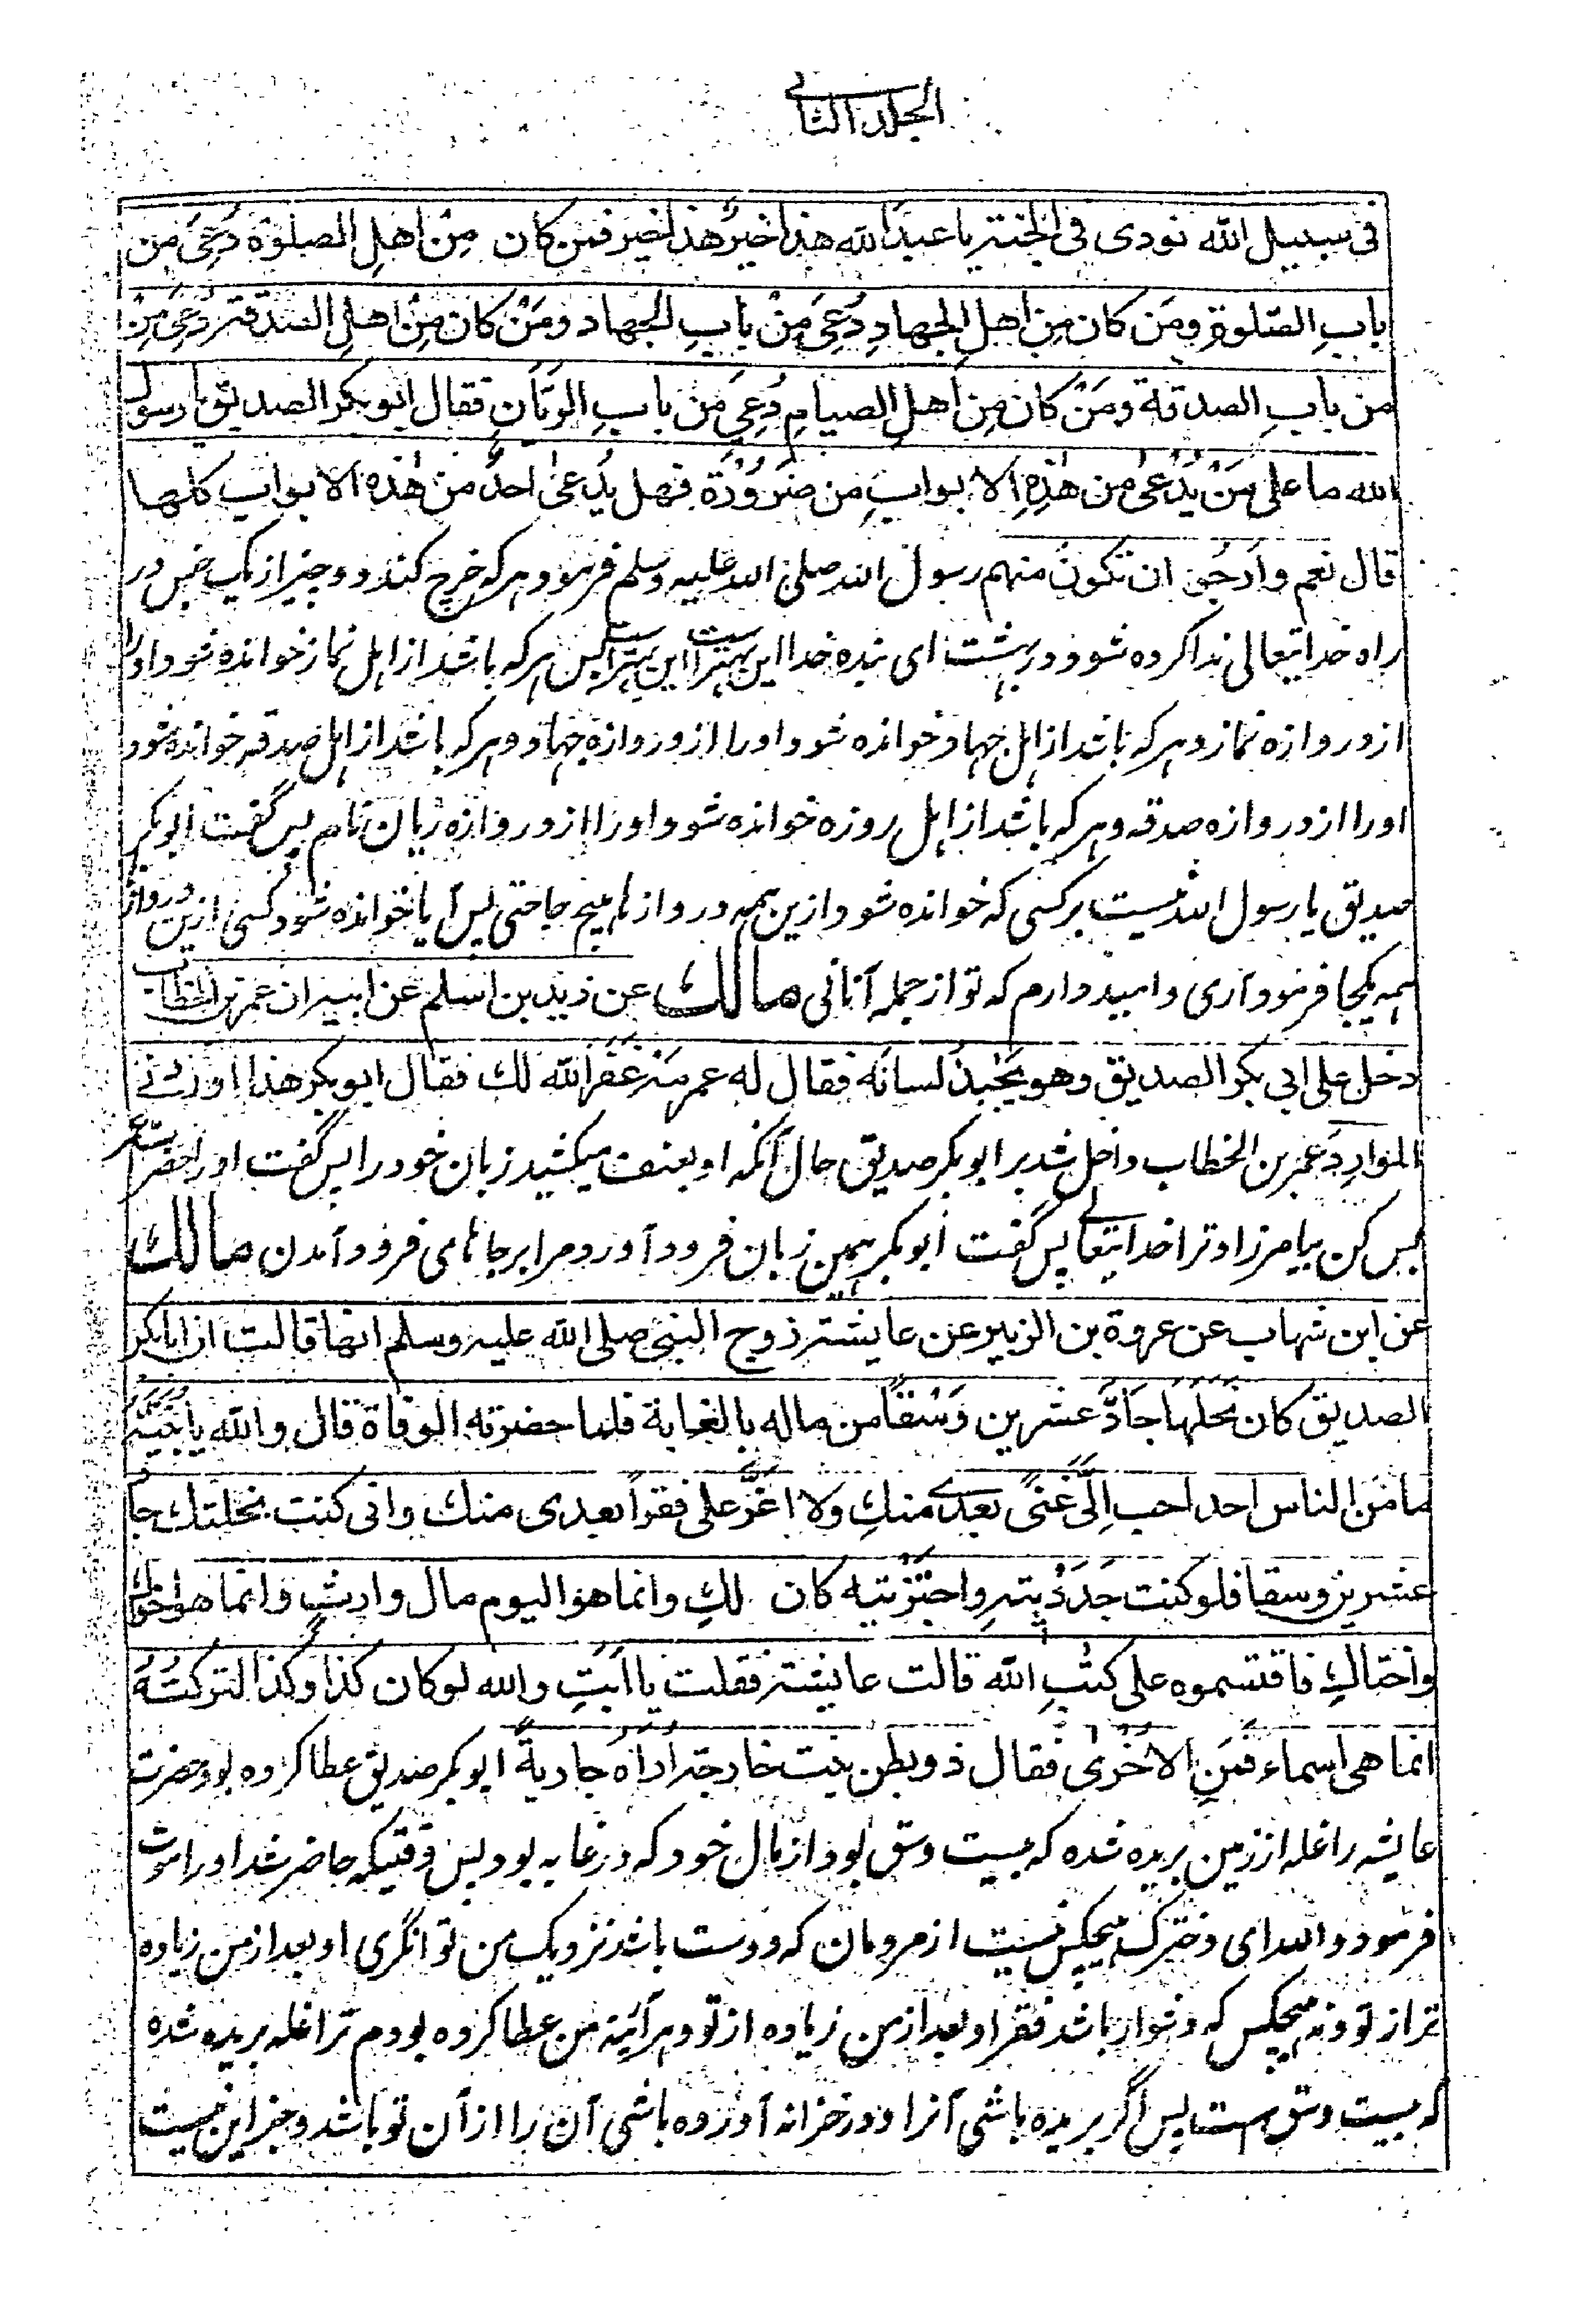 الجلد الثانی
فی سبیل الله نودی فی الجنة یا عبدَ الله هذا خیرٌ هذا خیر فمن کان مِنْ اهلِ الصلوٰة دُعِیَ من
بابِ الصلوٰة ومَن کان مِن اهلِ الجهادِ دُعِیَ مِنْ بابِ الجهاد ومَنْ کان مِنْ اهلِ الصدقة دُعِیَ مِنْ
من بابِ الصدقة ومَنْ کان مِن اهلِ الصیامِ دُعِیَ مَن بابِ الریّانِ فقال ابو بکر الصدیق یا رسول
الله ما علی مَنْ یُدْعیٰ من هٰذِهِ الابوابِ من ضَرُوْرَة فهل یُدعیٰ احدٌ من هٰذه الابواب کلها
قال نعم واَرجُو ان تکونَ منهم رسول الله صلی الله علیه وسلم فرمود هرکه خرچ کند دو چیز از یک جنس در
راه خدایتعالی ندا کرده شود در بهشت ای بنده خدا این بهترست این بهترست پس هرکه باشد از اهل نماز خوانده شود اورا
از دروازه نماز و هرکه باشد از اهل جهاد خوانده شود اورا از دروازه جهاد و هرکه باشد از اهل صدقه خوانده شود
اورا از دروازه صدقه و هرکه باشد از اهل روزه خوانده شود اورا از دروازه ریان نام پس گفت ابوبکر
صدیق یا رسول الله نیست بر کسی که خوانده شود ازین همه دروازها هیچ حاجتی پس آیا خوانده شود کسی ازین دروازها
همه یکجا فرمود آری و امیدوارم که تو از جمله آنانی مالك عن زید بن اسلم عن ابیه ان عمر بن الخطاب
دخل علی ابی بکر الصدیق وهو یَجْبِذُ لسانَه فقال له عمر مَهْ غَفَرَ الله لك فقال ابو بکر هذا اوردنی
المَوارِدَ عمر بن الخطاب داخل شد بر ابوبکر صدیق حال آنکه او بعنف میکشید زبان خود را پس گفت اورا حضرت عمر
بس کن بیامرزاد ترا خدایتعالی پس گفت ابوبکر همین زبان فرود آورد مرا بر جاهای فرود آمدن مالك
عن ابن شهاب عن عروة بن الزبیر عن عایشة زوج النبی صلی الله علیه وسلم انها قالت ان ابا بکر
الصدیق کان نَحَلَها جَادَّ عشرین وَسْقًا من ماله بالغابة فلما حضرته الوفاة قال والله یا بُنَیَّةُ
ما من الناس احد احب اِلَیَّ غنًی بعدی منكِ ولا اعَزُّ علی فقرًا بعدی منك وانی کنت نحلتك جادّ
عشرین وسقا فلو کنت جَدَدْتِیهِ واحتَزْتیه کان لكِ وانما هو الیوم مال وارثٍ وانما هو اخواك
واختاكِ فاقتسموه علی کتٰبِ الله قالت عایشة فقلت یا ابَتِ والله لو کان کذا وکذا لترکتُهُ
انما هی اسماء فمَنِ الاُخْریٰ فقال ذو بطن بنت خارجة اُراهُ جاریةً ابوبکر صدیق عطا کرده بود حضرت
عایشه را غله از زمین بریده شده که بیست وسق بود از مال خود که در غابه بود پس وقتیکه حاضر شد اورا موت
فرمود والله ای دخترک هیچکس نیست از مردمان که دوست باشد نزدیک من توانگری او بعد از من زیاده
تر از تو و نه هیچکس که دشوار باشد فقر او بعد از من زیاده از تو و هرآئینه من عطا کرده بودم ترا غله بریده شده
که بیست وسق ست پس اگر بریده باشی آنرا و در خزانه آورده باشی آن را از آن تو باشد و جز این نیست